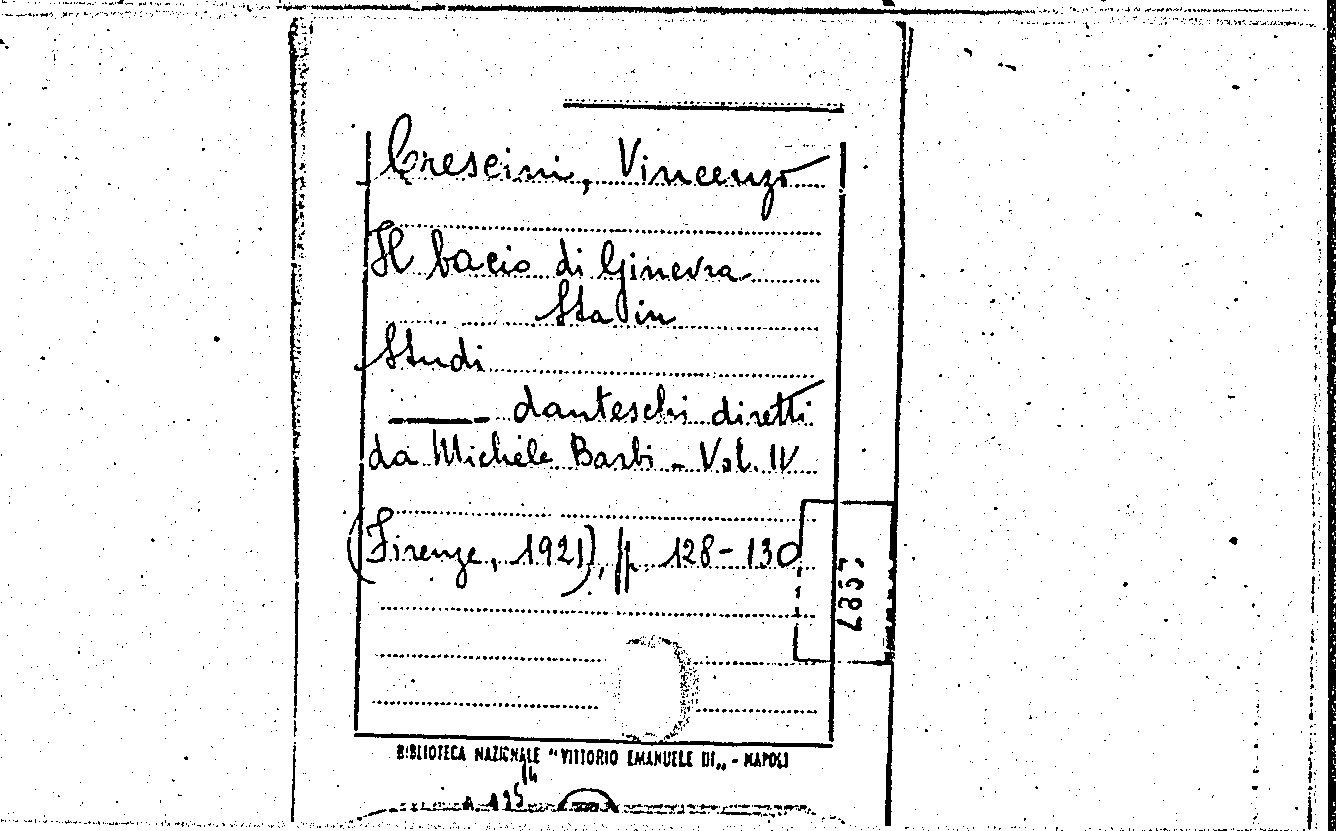 Crescini, Vincenzo
Il bacio di Ginevra
Sta in
Studi
danteschi diretti
da Michele Barbi - Vol. IV
(Firenze, 1921), p. 128-130
BIBLIOTECA NAZIONALE "VITTORIO EMANUELE III„ - NAPOLI